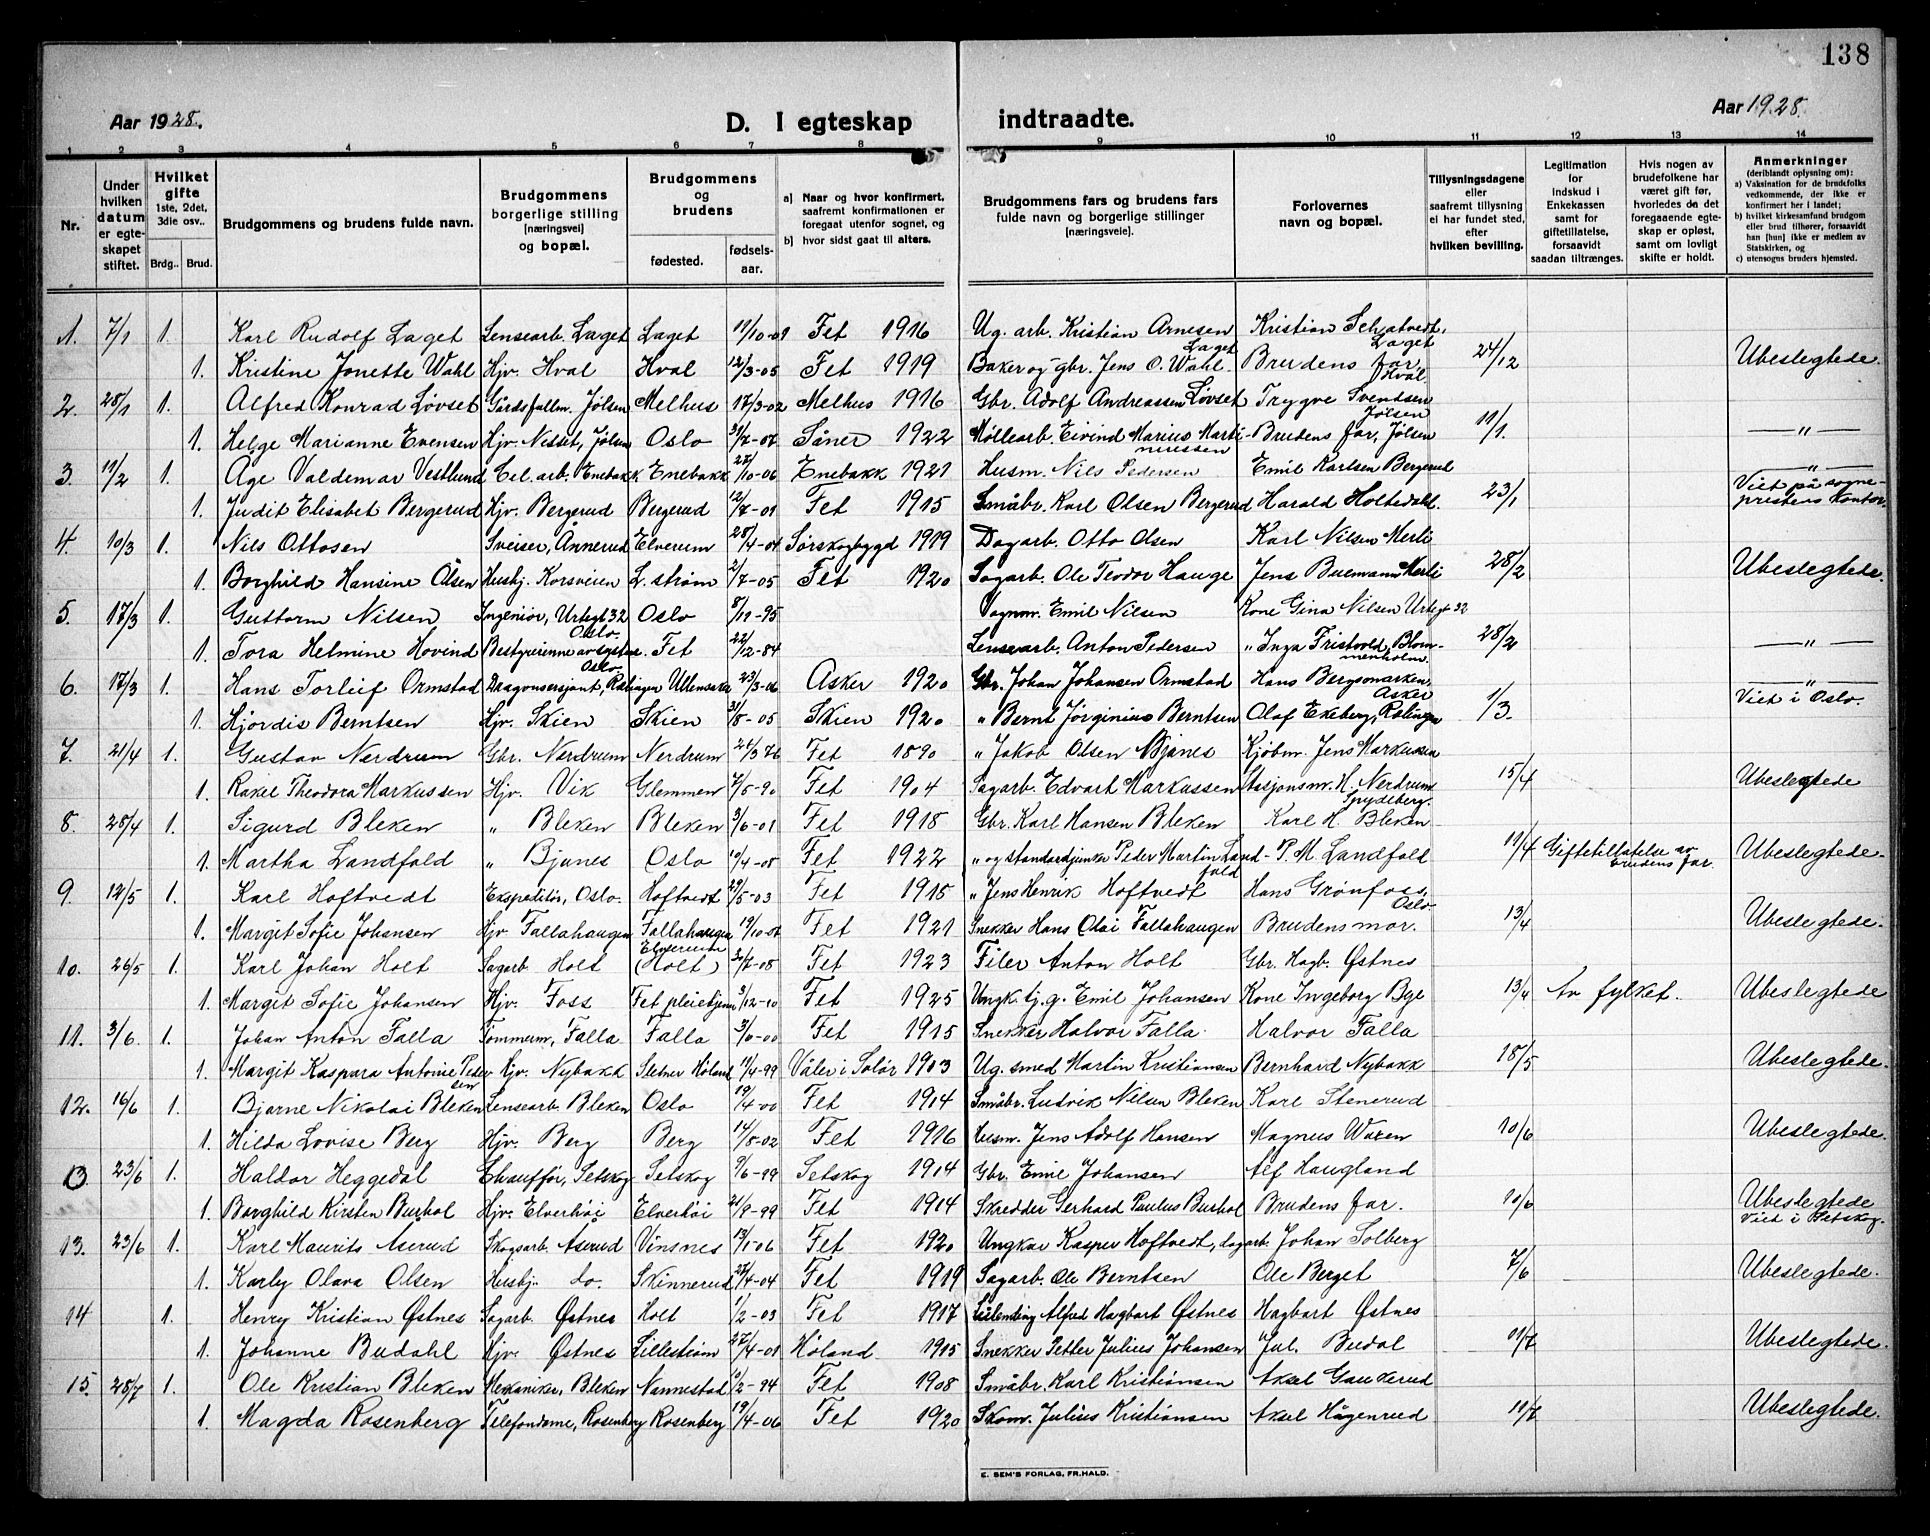 138
Aar 1928.
D. I egteskap indtraadte.
Aar 1928.
1 2 3 4 5 6 7 8 9 10 11 12 13 14
Nr.
Under hvilken datum er egteskapet stiftet.
Hvilket gifte 1ste, 2det, 3die osv..
Brdg.. Brud.
Brudgommens og brudens fulde navn.
Brudgommens borgerlige stilling [næringsvei] og bopæl.
Brudgommens og brudens
fødested. fødsels-aar.
a) Naar og hvor konfirmert, saafremt konfirmationen er foregaat utenfor sognet, og
b) hvor sidst gaat til alters.
Brudgommens fars og brudens fars fulde navn og borgerlige stillinger (næringsveie).
Forlovernes navn og bopæl.
Tillysningsdagene eller saafremt tillysning ei har fundet sted, efter hvilken bevilling.
Legitimation for indskud i Enkekassen samt for giftetillatelse, forsaavidt saadan tiltrænges.
Hvis nogen av brudefolkene har været gift før, hvorledes da det foregaaende egteskap er opløst, samt om lovligt skifte er holdt.
Anmerkninger (deriblandt oplysning om):
a) Vaksination for de brudefolks vedkommende, der ikke er konfirmert her i landet;
b) hvilket kirkesamfund brudgom eller brud tilhører, forsaavidt han [hun] ikke er medlem av Statskirken, og
c) utensogns bruders hjemsted.
1. 7/1 1. Karl Rudolf Laget Lensearb. Laget Laget 11/10-01 Fet 1916 Ug. arb. Kristian Arnesen Laget Kristian Schatvedt, Laget
1. Kristine Jonette Wahl Hjv. Hval Hval 12/3-05 Fet 1919 Baker og gbr. Jens O. Wahl Brudens far, Hval 24/12 Ubeslegtede.
2. 28/1 1. Alfred Konrad Løvset Gårdsfullm. Jølsen Melhus 17/3-02 Melhus 1916 Gbr. Adolf Andreassen Løvset Trygve Svendsen Jølsen
1. Helge Marianne Evensen Hjv. Nisset, Jølsen Oslo 31/7-07 Såner 1922 Møllearb. Eivind Marius Martiniussen Brudens far, Jølsen 11/1. — " —
3. 11/2 1. Åge Valdemar Vestlund Cel. arb. Enebakk Enebakk 27/10-06 Enebakk 1921 Husm. Nils Pedersen Emil Karlsen Bergerud — " —
1. Judit Elisabet Bergerud Hjv. Bergerud Bergerud 12/7-01 Fet 1915 Småbr. Karl Olsen Bergerud Harald Holtedahl. 23/1 Viet på sogneprestens kontor.
4. 10/3 1. Nils Ottosen Sveiser, Annerud Elverum 28/4-04 Sørskogbygd 1919 Dagarb. Otto Olsen Karl Nilsen Merli
1. Borghild Hansine Olsen Husbj. Korsveien L.strøm 2/7-05 Fet 1920 Sagarb. Ole Teodor Hauge Jens Buemann Merli 28/2 Ubeslegtede.
5. 17/3 1. Guttorm Nilsen Ingeniør, Urtegt 32 Oslo. Oslo 8/11-95 Vognm. Emil Nilsen Kone Gina Nilsen Urtegt 32
1. Tora Helmine Hovind Bestyrerinne av systue. Oslo Fet 22/12-84 Lensearb. Anton Pedersen " Inga Fristvold, Blommenholm. 28/2 — " —
6. 17/3 1. Hans Torleif Ormstad Dragonsersjant, Rælingen Ullensaker 23/3-06 Asker 1920 Gbr. Johan Johansen Ormstad Hans Bergsmarken, Asker — " —
1. Hjørdis Berntsen Hjv. Skien Skien 31/8-05 Skien 1920 " Bernt Jørginius Berntsen Olaf Ekeberg, Rælingen 1/3. Viet i Oslo.
7. 21/4 1. Gustav Nerdrum Gbr. Nerdrum Nerdrum 24/3 76 Fet 1890 " Jakob Olsen Bjanes Kjøbm. Jens Markussen
1. Rakel Theodora Markussen Hjv. Vik Glemmen 7/5-90 Fet 1904 Sagarb. Edvart Markussen Stasjonsm. H. Nerdrum Spydeberg. 15/4 Ubeslegtede
8. 28/4 1. Sigurd Bleken " Bleken Bleken 3/6-01 Fet 1918 Gbr. Karl Hansen Bleken Karl H. Bleken
1. Martha Landfald " Bjanes Oslo 10/4-08 Fet 1922 " og standardjunker Peder Martin Landfald P. M. Landfald 11/4 Giftetillatelse av brudens far. Ubeslegtede.
9. 12/5 1. Karl Hoftvedt Ekspeditør, Oslo. Hoftvedt 29/5-03 Fet 1915 " Jens Henrik Hoftvedt Hans Grønfoss, Oslo.
1. Margit Sofie Johansen Hjv Fallahaugen Fallahaugen 19/10-06 Fet 1921 Snekker Hans Olai Fallahaugen Brudens mor. 13/4 Ubeslegtede.
10. 26/5 1. Karl Johan Holt Sagarb Holt Elverum (Holt) 30/7-08 Fet 1923 Filer Anton Holt Gbr. Hagb. Østnes
1. Margit Sofie Johansen Hjv. Foss Fet pleiehjem 3/12-10 Fet 1925 Ungk. tj.g. Emil Johansen Kone Ingeborg Bye 13/4 Av fylket. Ubeslegtede
11. 3/6. 1. Johan Anton Falla Tømmerm, Falla Falla 3/6-00 Fet 1915 Snekker Halvor Falla. Halvor Falla
1. Margit Kaspara Antonie Pedersen Hjv. Nybakk Setner Høland 11/4-99 Våler i Solør 1913 Ug. smed Martin Kristiansen Bernhard Nybakk 18/5 Ubeslegtede.
12. 16/6 1. Bjarne Nikolai Bleken Lensearb Bleken Oslo 19/4-00 Fet 1914 Småbr. Ludvik Nilsen Bleken Karl Stenerud
1. Hilda Lovise Berg Hjv. Berg Berg 14/8-02 Fet 1916 Husm. Jens Adolf Hansen Magnus Waren 10/6 Ubeslegtede.
23/6 1. Haldor Heggedal Chauffør, Setskog Setskog 9/6-99 Setskog 1914 Gbr. Emil Johansen Alf Haugland
1. Borghild Kirsten Burhol Hjv. Elverhøi Elverhøi 21/9-99 Fet 1914 Skredder Gerhard Paulus Burhol Brudens far. 10/6 Ubeslegtede Viet i Setskog.
13. 23/6 1. Karl Maurits Aserud Skogsarb. Aserud Vinsnes 13/1-06 Fet 1920 Ungkar Kasper Hoftvedt, dagarb. Johan Solberg
1. Karly Olava Olsen Husbj. do. Skinnerud 27/4-04 Fet 1919 Sagarb. Ole Berntsen Ole Berget 7/6 Ubeslegtede.
14 1. Henry Kristian Østnes Sagarb. Østnes Holt 1/2-03 Fet 1917 Alfred Hagbart Østnes Hagbart Østnes
1. Johanne Budahl Hjv. Østnes Lillestrøm 27/4-01 Høland. 1915 Snekker Petter Julius Johansen Jul. Budal 11/7 Ubeslegtede.
15. 28/7 1. Ole Kristian Bleken Mekaniker, Bleken Nannestad 1/2-94 Fet 1908 Småbr. Karl Kristiansen Aksel Gaukerud
1. Magda Rosenberg Telefondame, Rosenberg Rosenberg 19/4-06 Fet 1920 Skom. Julius Kristiansen Aksel Hågenrud 11/7 Ubeslegtede.
E. SEM'S FORLAG, FR.HALD.